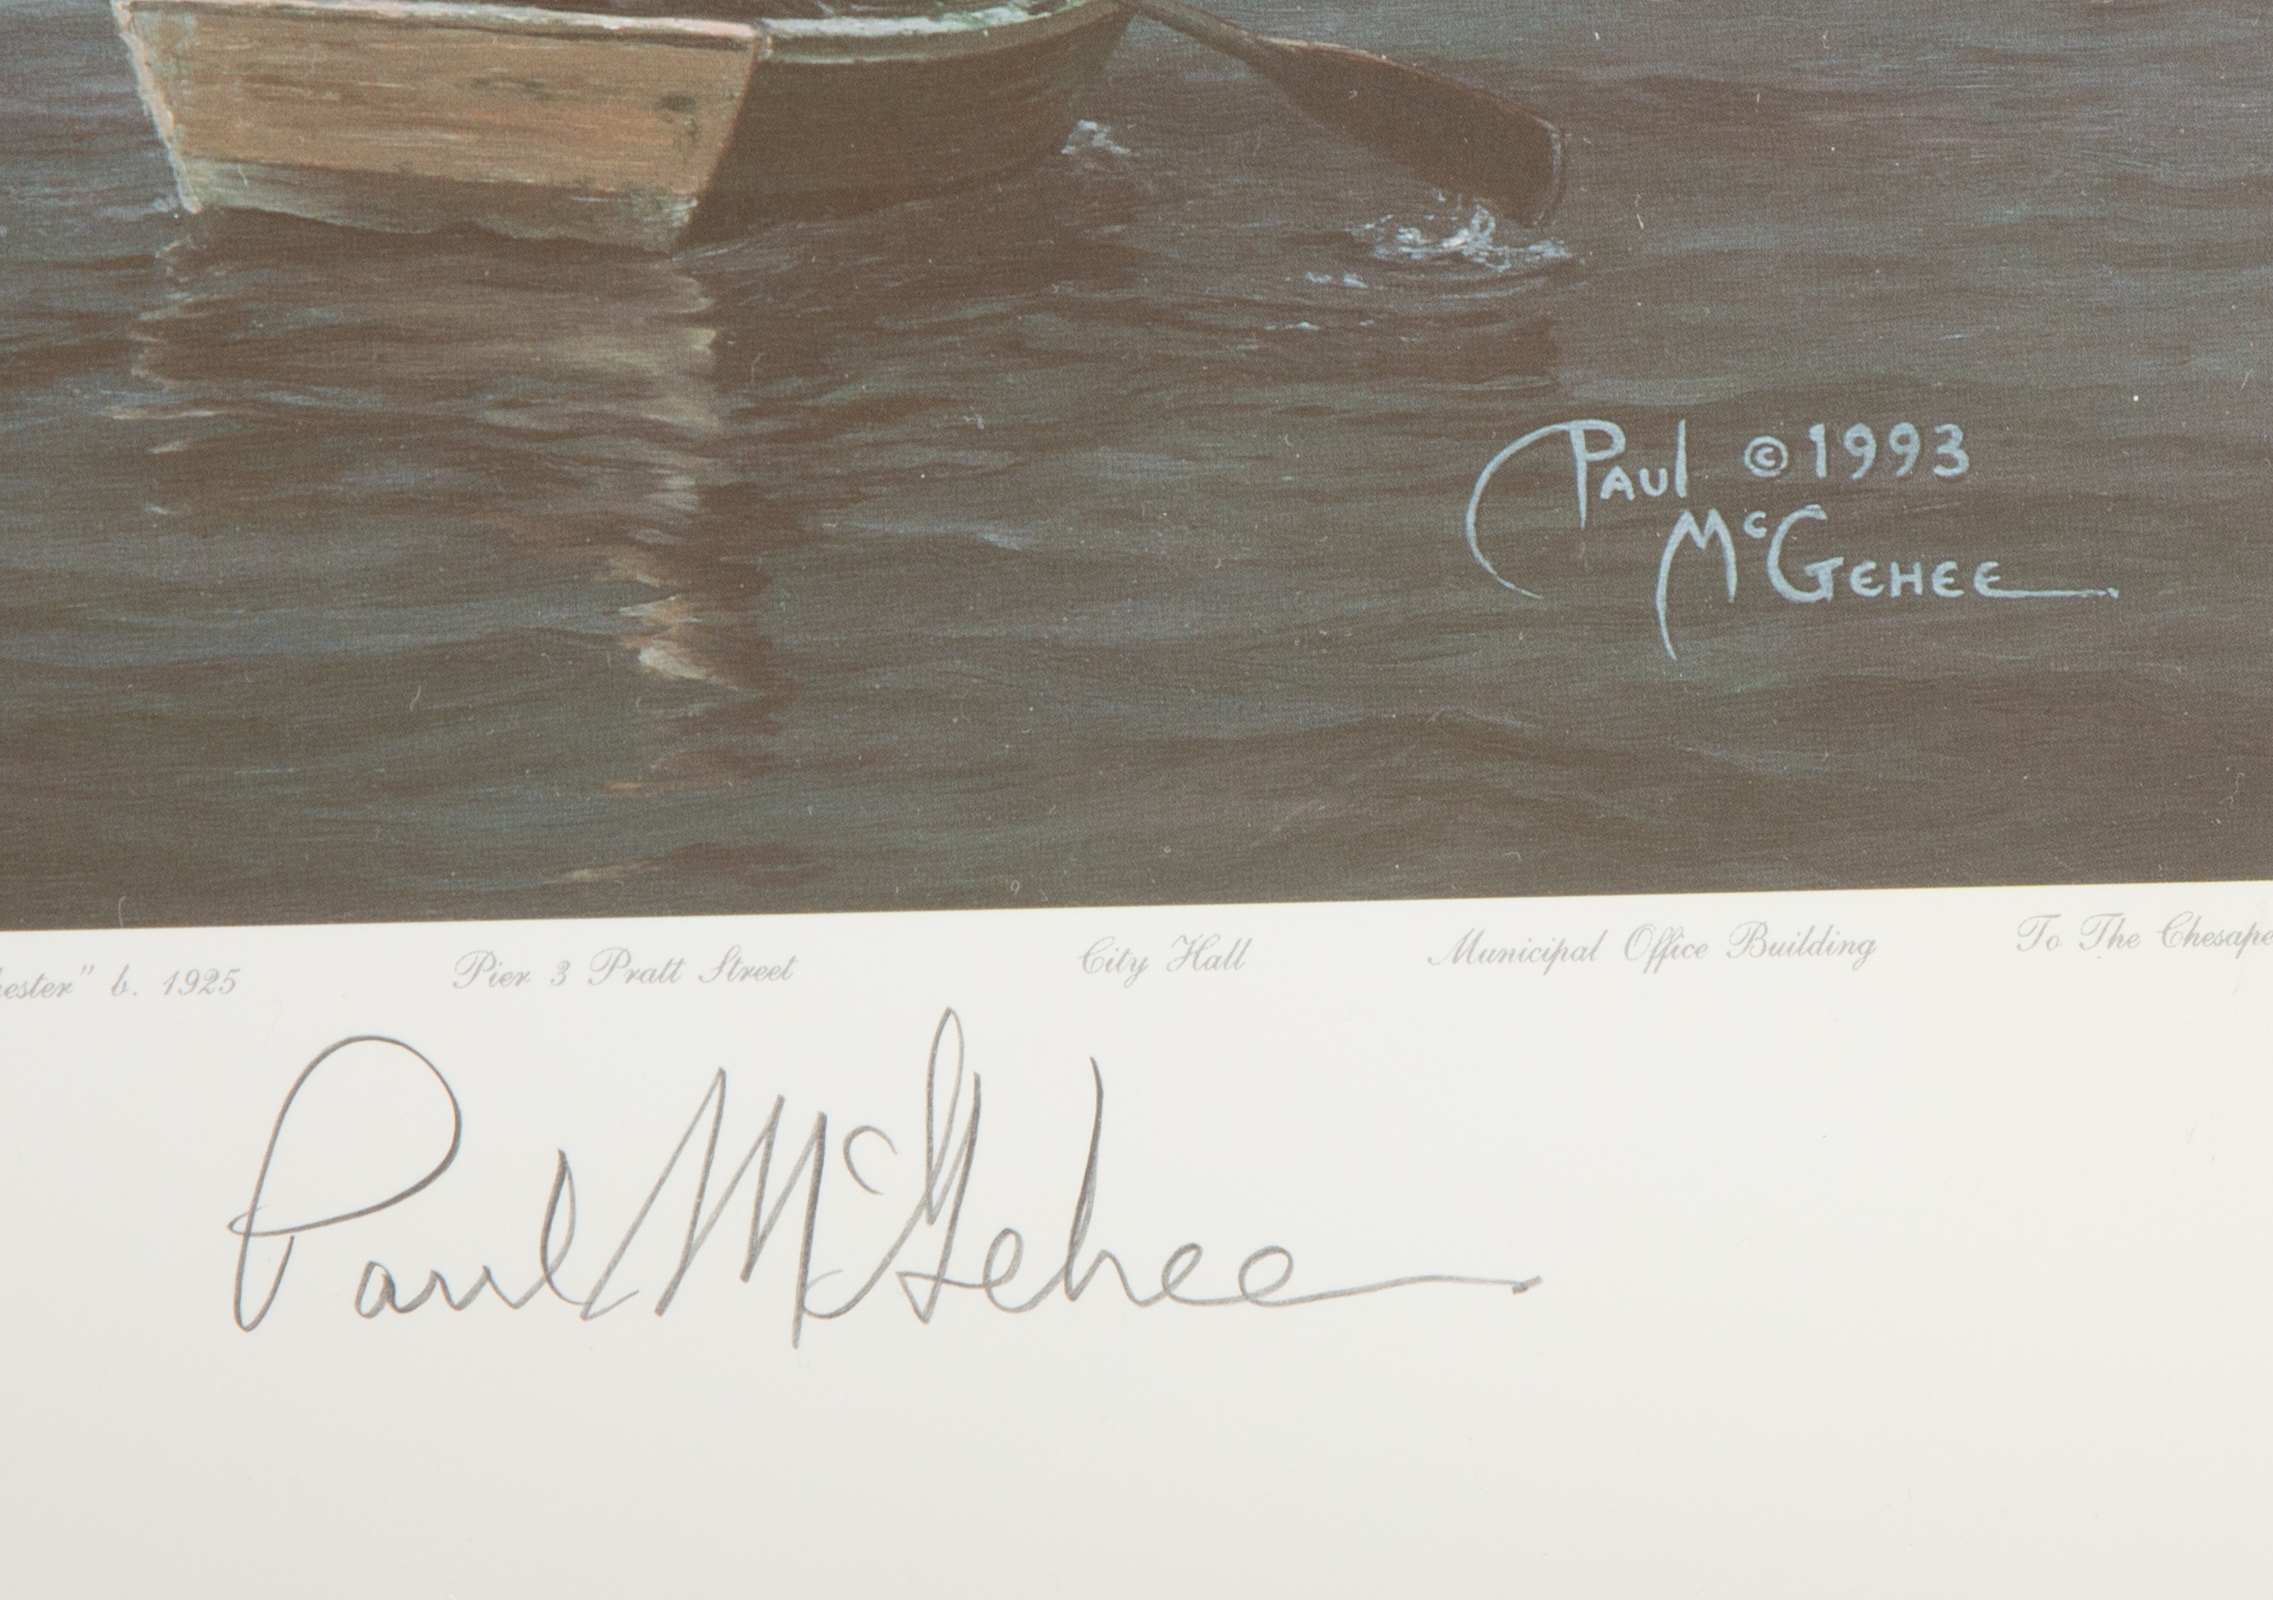 Paul ©1993
McGehee
ester" b. 1925 Pier 3 Pratt Street City Hall Municipal Office Building To The Chesape
Paul McGehee